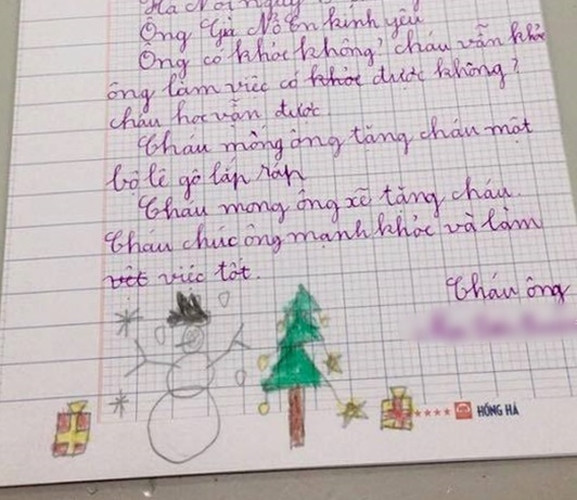 Hà Nội ngày
Ông Già Nô En kính yêu
Ông có khỏe không? cháu vẫn khỏe
ông làm việc có khỏe được không?
cháu học vẫn được.
Cháu mòng ông tăng cháu một
bộ lê gô lắp ráp
Cháu mong ông xẽ tăng cháu.
Cháu chúc ông mạnh khỏe và làm
việt việc tốt.
Cháu ông
HỒNG HÀ